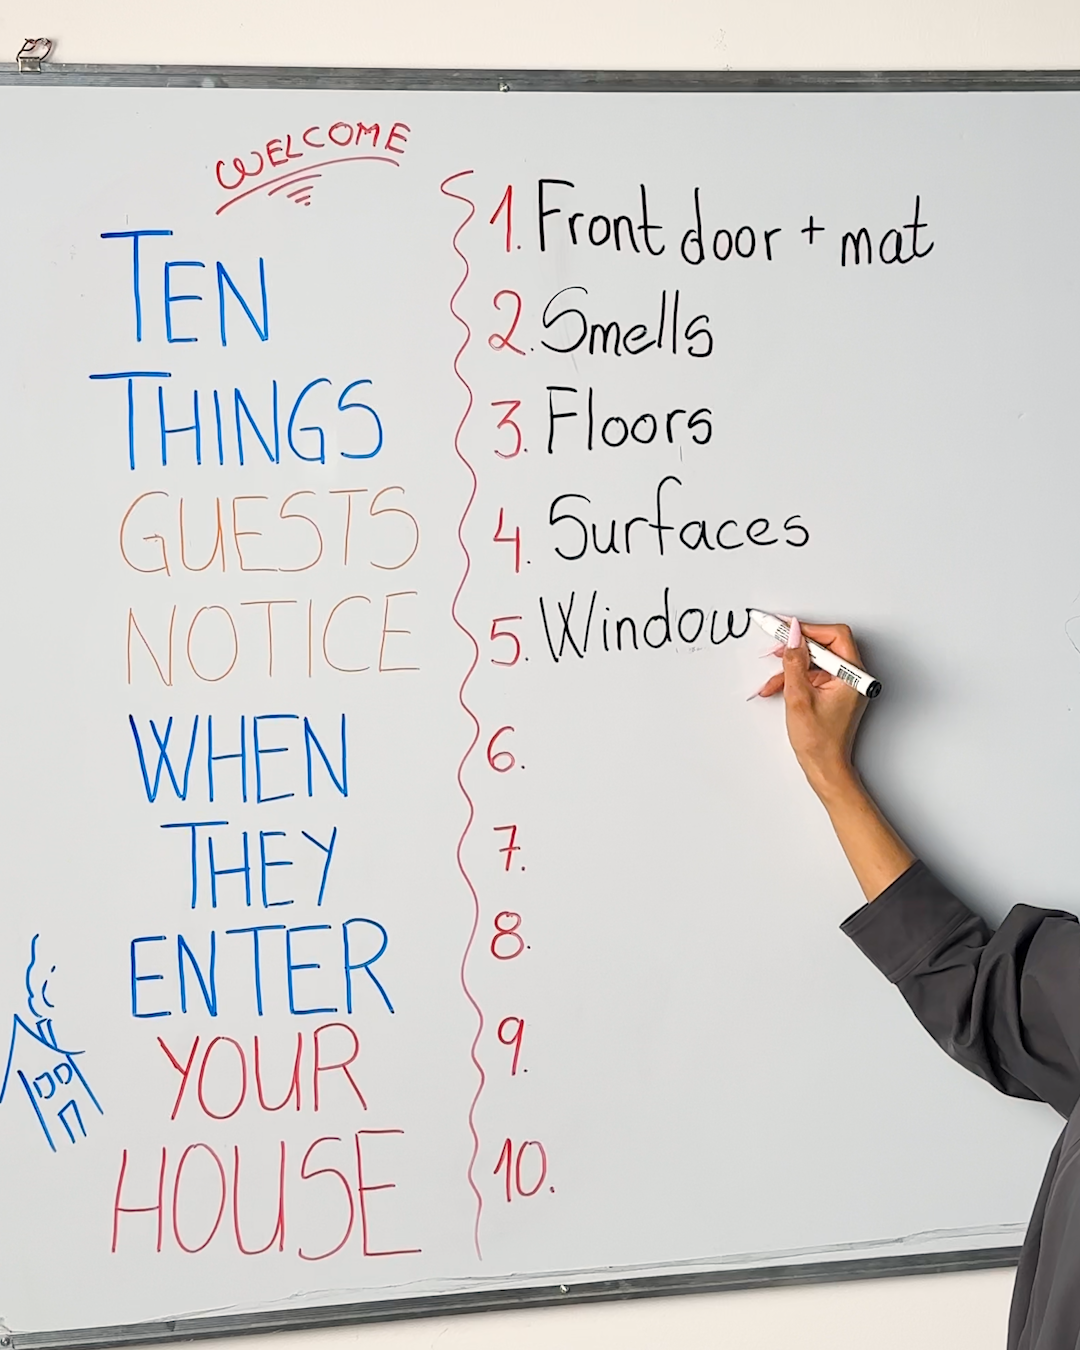 WELCOME
TEN
THINGS
GUESTS
NOTICE
WHEN
THEY
ENTER
YOUR
HOUSE
1. Front door + mat
2. Smells
3. Floors
4. Surfaces
5. Window
6.
7.
8.
9.
10.